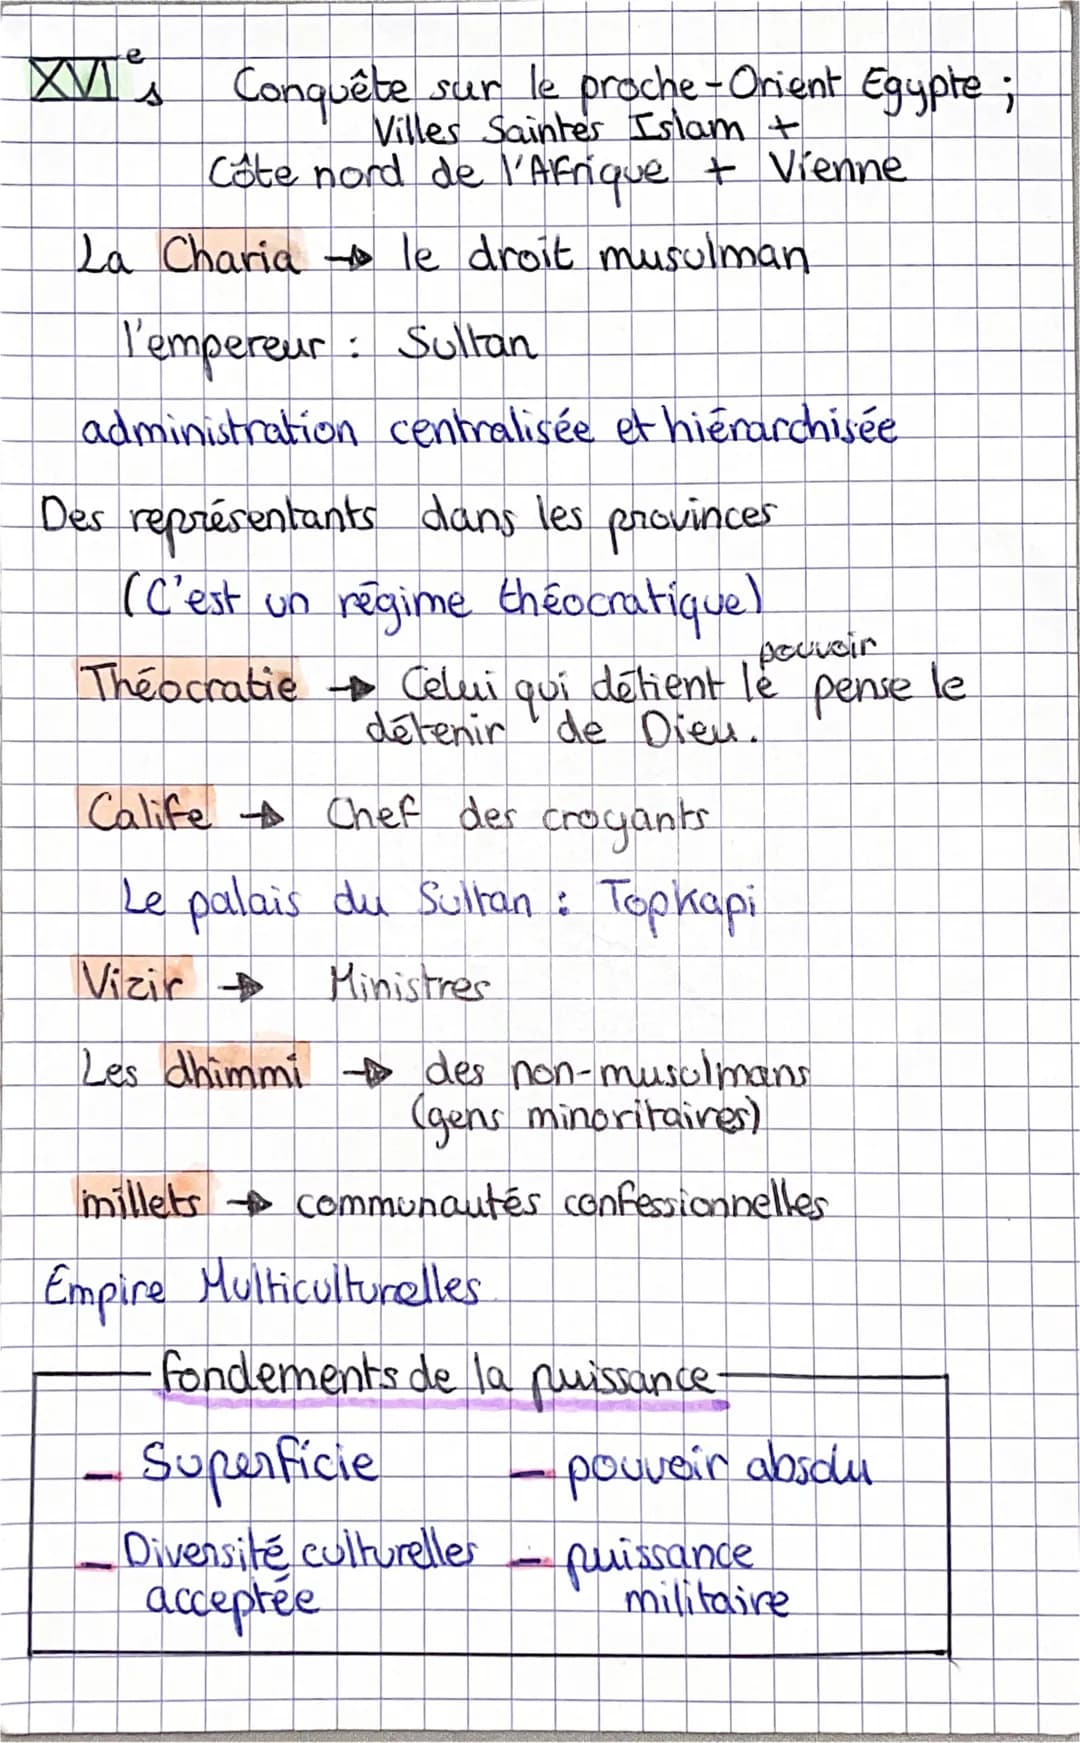 XVIe s Conquête sur le proche-Orient Egypte ;
Villes Saintes Islam +
Côte nord de l'Afrique + Vienne
La Charia → le droit musulman
l'empereur : Sultan
administration centralisée et hiérarchisée
Des représentants dans les provinces
(C'est un régime théocratique)
pouvoir
Théocratie → Celui qui détient le pense le
détenir de Dieu.
Calife → Chef des croyants
Le palais du Sultan : Topkapi
Vizir → Ministres
Les dhimmi → des non-musulmans
(gens minoritaires)
millets → communautés confessionnelles
Empire Multiculturelles
fondements de la puissance
- Superficie - pouvoir absolu
- Diversité culturelles - puissance
acceptée militaire